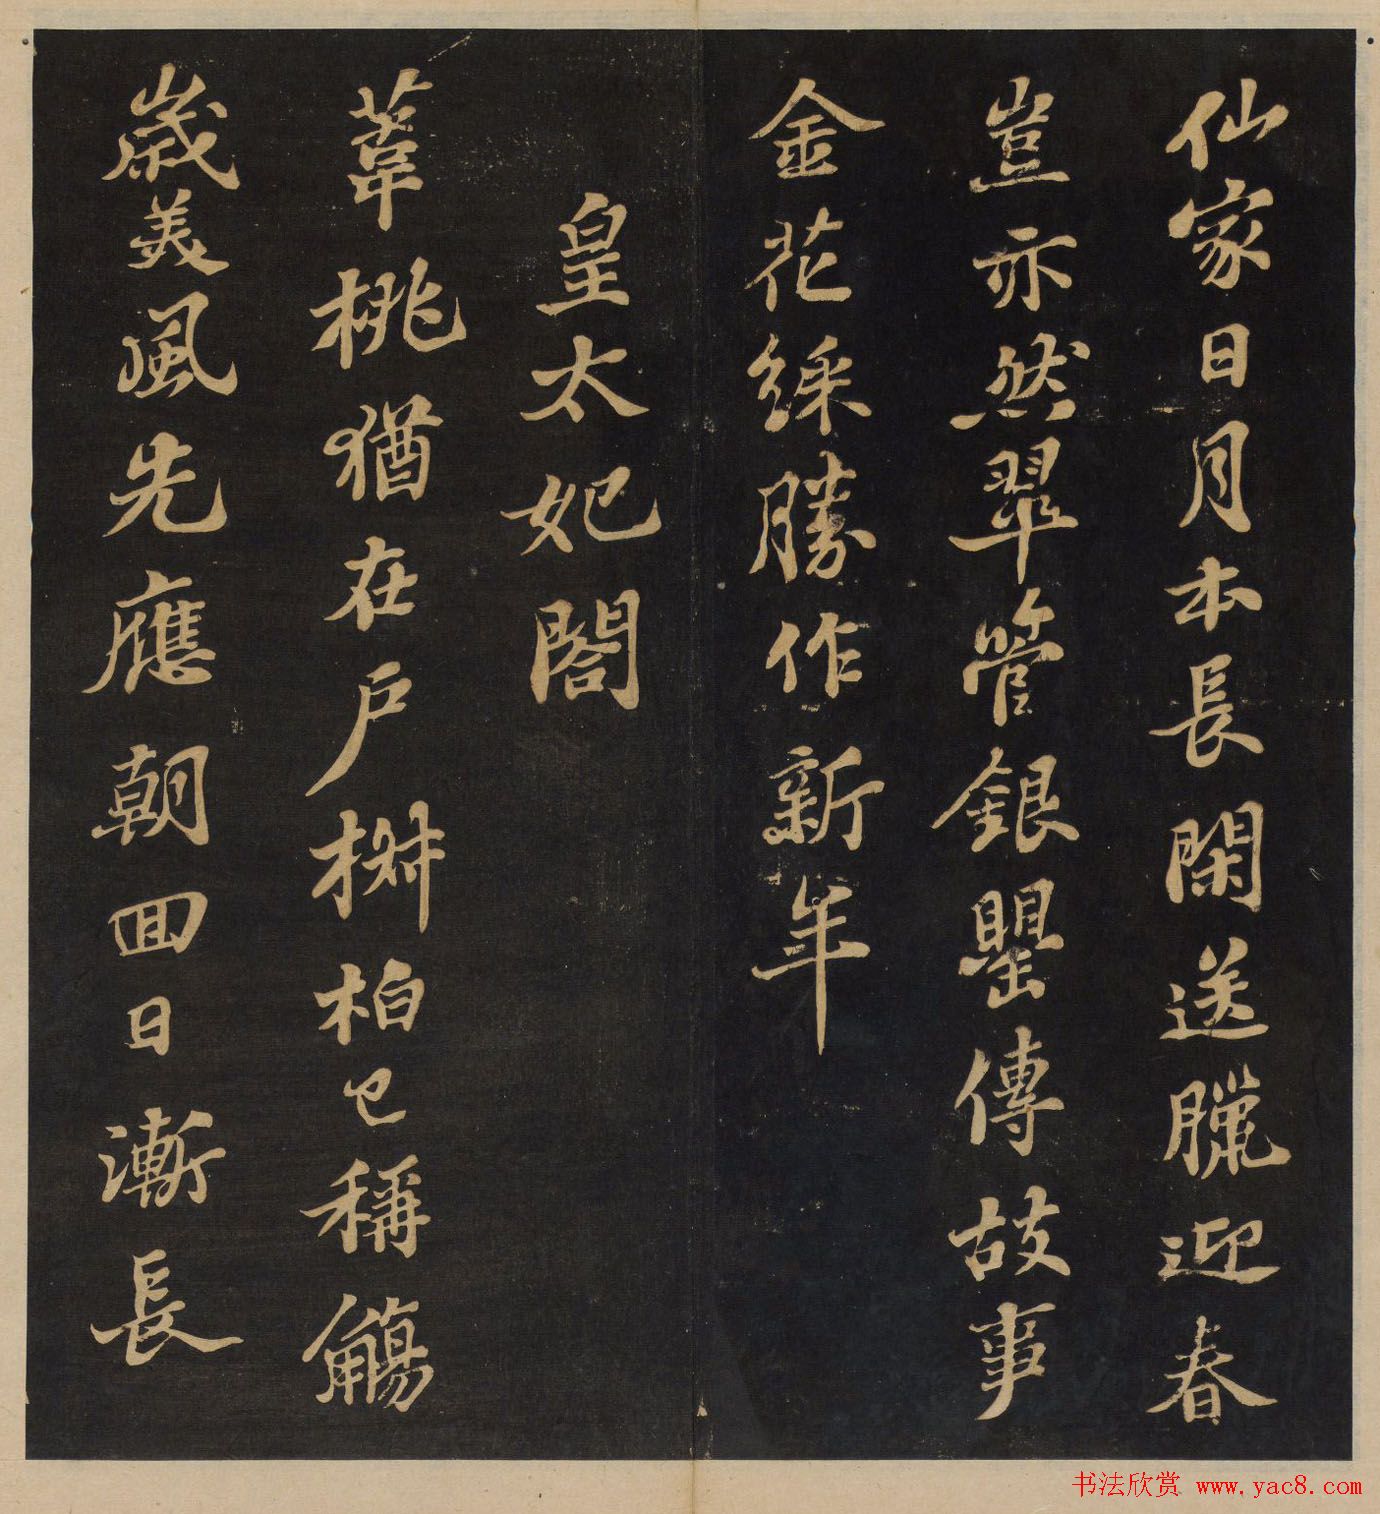 仙家日月本長閑送臘迎春
豈亦然翠管銀罌傳故事
金花綵勝作新年
皇太妃閤
葦桃猶在戶椒柏已稱觴
歲美風先應朝回日漸長
书法欣赏 www.yac8.com